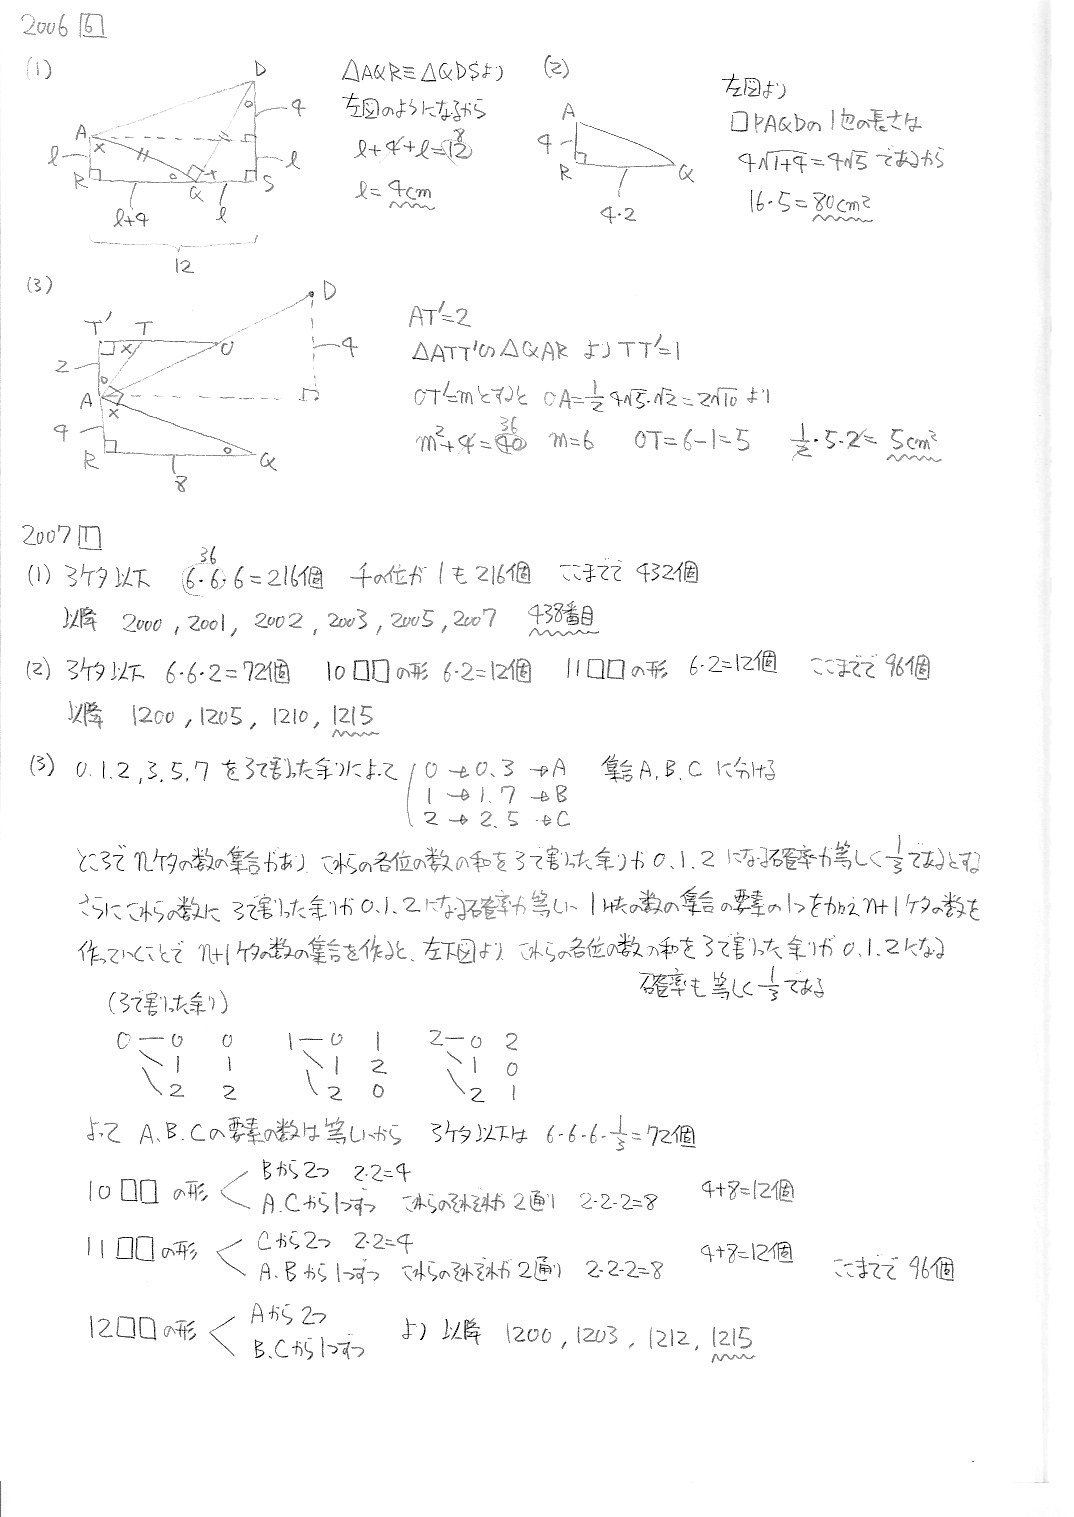 2006 6
(1)
D
4
A
×
l
l
R
Q
S
l+4
l
12
△AQR≡△QDSより
左図のようになるから
l+4+l=12
8
l=4cm
(2)
A
4
R
Q
4・2
左図より
□PAQDの1辺の長さは
4√1+4=4√5であるから
16・5=80cm²
(3)
D
T' T
O
2
4
A
×
4
R
Q
8
AT'=2
△ATT'∽△QAR より TT'=1
OT'=mとすると OA=1/2 4√5・√2=2√10 より
m²+4=40 36 m=6 OT=6-1=5 1/2・5・2=5cm²
2007 1
(1) 3ケタ以下 6・6・6=216個 36 千の位が1も216個 ここまでで432個
以降 2000, 2001, 2002, 2003, 2005, 2007 438番目
(2) 3ケタ以下 6・6・2=72個 10□□の形 6・2=12個 11□□の形 6・2=12個 ここまでで96個
以降 1200, 1205, 1210, 1215
(3) 0.1.2,3.5.7を3で割った余りによって 0→0.3→A 集合A.B.Cに分ける
1→1.7→B
2→2.5→C
ところでnケタの数の集合があり これらの各位の数の和を3で割った余りが0.1.2になる確率が等しく1/3であるとする
さらにこれらの数に3で割った余りが0.1.2になる確率が等しい1ケタの数の集合の要素の1つをかえn+1ケタの数を
作っていくことでn+1ケタの数の集合を作ると、左下図より これらの各位の数の和を3で割った余りが0.1.2になる
確率も等しく1/3である
(3で割った余り)
0-0 0 1-0 1 2-0 2
1 1 1 2 1 0
2 2 2 0 2 1
よって A.B.Cの要素の数は等しいから 3ケタ以下は 6・6・6・1/3=72個
10□□の形 Bから2つ 2・2=4
A.Cから1つずつ これらのそれぞれが2通り 2・2・2=8 4+8=12個
11□□の形 Cから2つ 2・2=4
A.Bから1つずつ これらのそれぞれが2通り 2・2・2=8 4+8=12個 ここまでで96個
12□□の形 Aから2つ
B.Cから1つずつ より 以降 1200, 1203, 1212, 1215